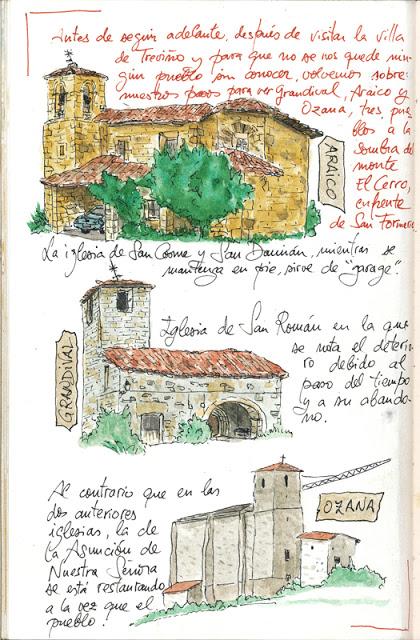 Antes de seguir adelante, después de visitar la villa
de Treviño y para que no se nos quede nin-
gún pueblo sin conocer, volvemos sobre
nuestros pasos para ver Grandival, Araico y
Ozana, tres pue
blos a la
sombra del
monte
El Cerro,
enfrente
de San Formerio
ARAICO
La iglesia de San Cosme y San Damián, mientras se
mantenga en pie, sirve de "garage".
GRANDIVAL
Iglesia de San Román en la que
se nota el deterio
ro debido al
paso del tiempo
y a su abando
no.
Al contrario que en las
dos anteriores
iglesias, la de
la Asunción de
Nuestra Señora
se está restaurando
a la vez que el
pueblo.
OZANA